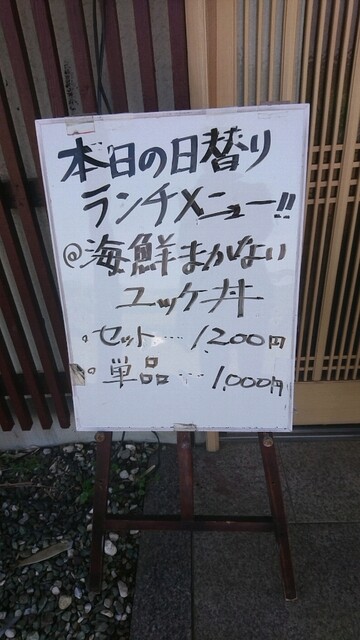 本日の日替り
ランチメニュー!!
@海鮮まかない
ユッケ丼
・セット… 1,200円
・単品… 1,000円